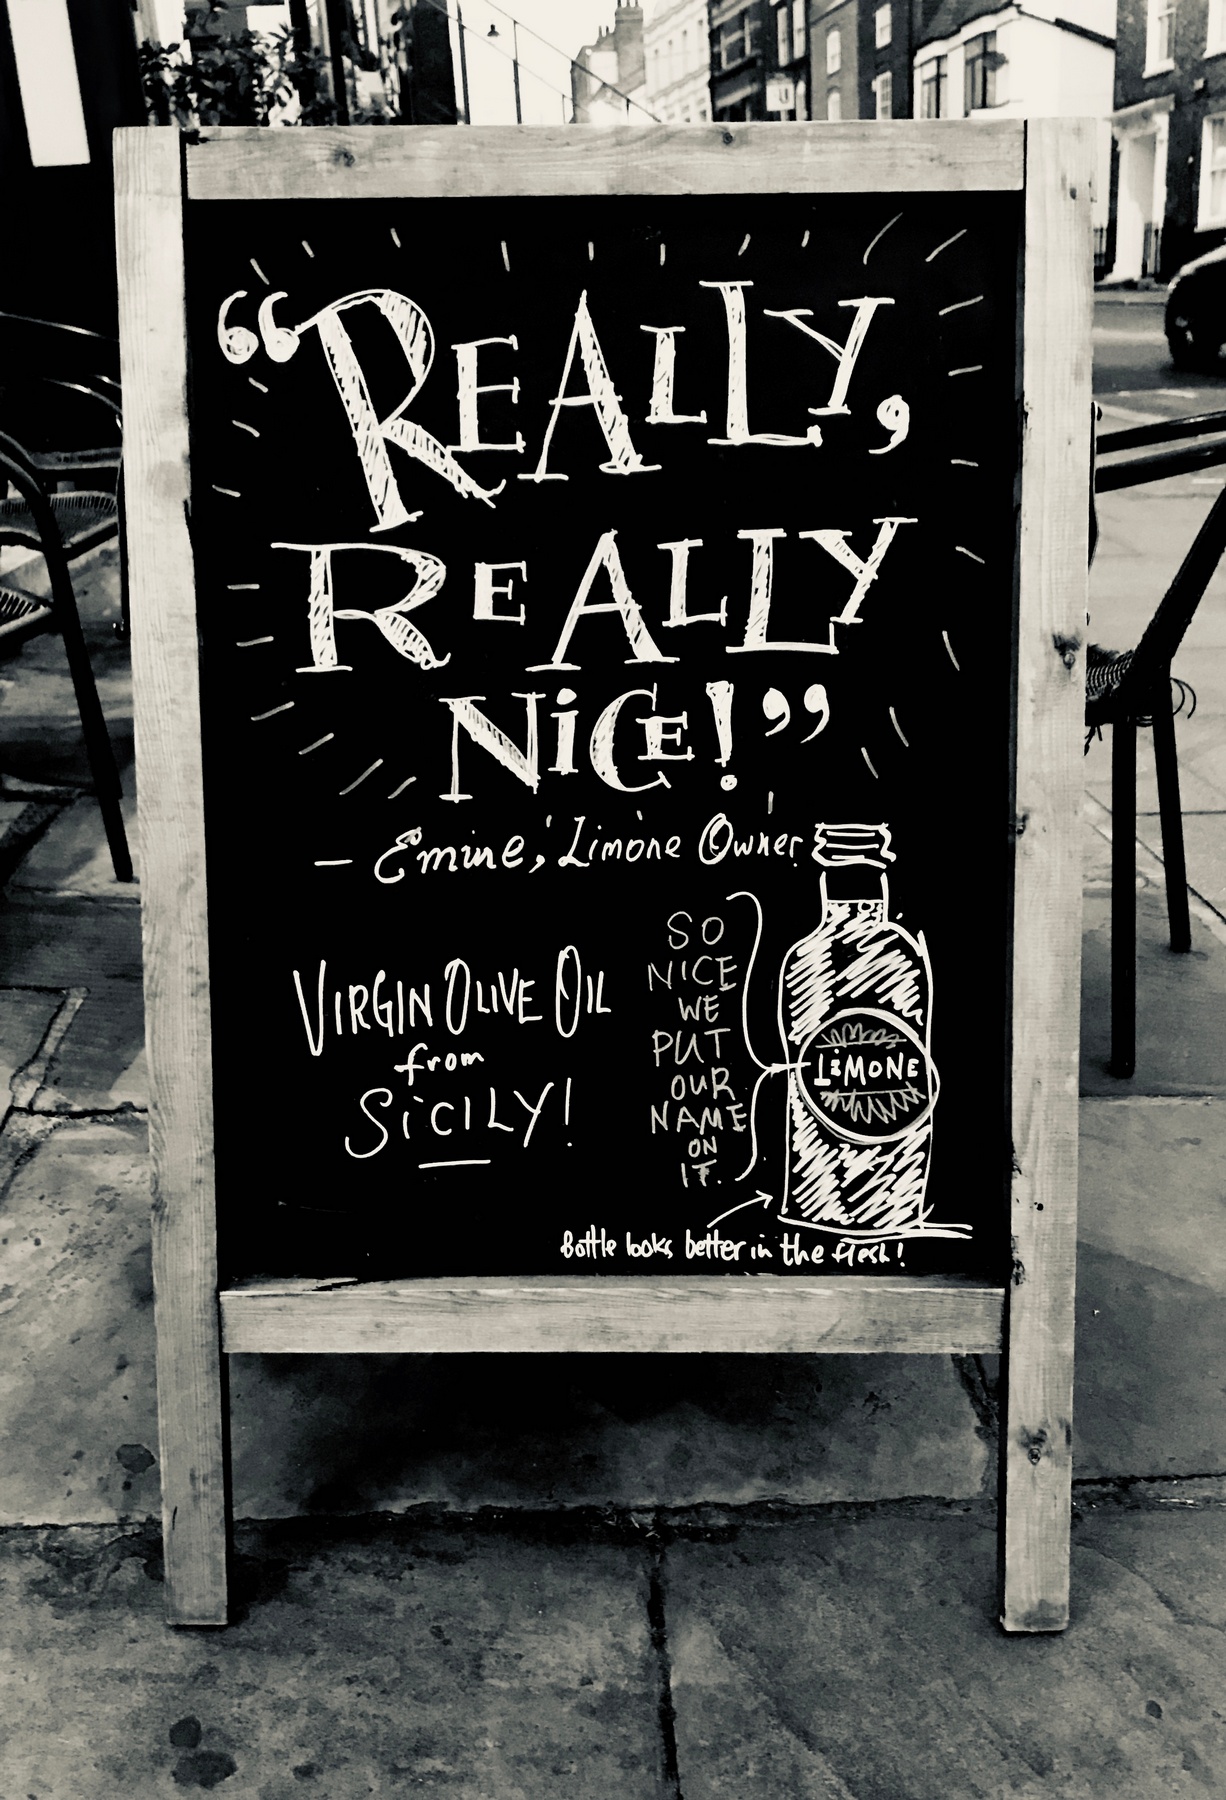 “REALLY,
REALLY
NiCE!”
— Emine, Limone Owner
VIRGIN OLIVE OIL
from
SiCILY!
SO
NICE
WE
PUT
OUR
NAME
ON
IT.
LiMONE
Bottle looks better in the flesh!